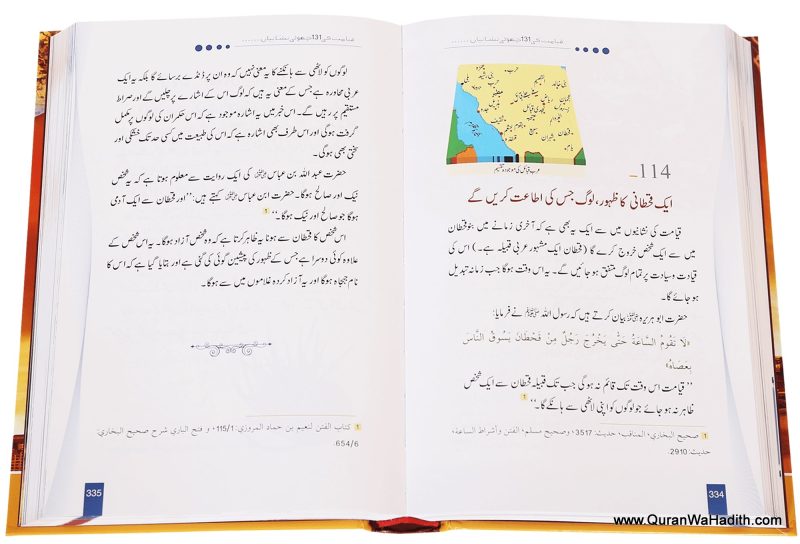 قیامت کی 131 چھوٹی نشانیاں ......
114
عرب قبائل کی موجودہ تقسیم
ایک قحطانی کا ظہور، لوگ جس کی اطاعت کریں گے
قیامت کی نشانیوں میں سے ایک یہ بھی ہے کہ آخری زمانے میں بنوقحطان
میں سے ایک شخص خروج کرے گا (قحطان ایک مشہور عربی قبیلہ ہے۔) اس کی
قیادت وسیادت پر تمام لوگ متفق ہو جائیں گے۔ یہ اس وقت ہوگا جب زمانہ تبدیل
ہو جائے گا۔
حضرت ابو ہریرہ رضی اللہ عنہ بیان کرتے ہیں کہ رسول اللہ ﷺ نے فرمایا:
«لَا تَقُومُ السَّاعَةُ حَتَّى يَخْرُجَ رَجُلٌ مِنْ قَحْطَانَ يَسُوقُ النَّاسَ
بِعَصَاهُ»
”قیامت اس وقت تک قائم نہ ہوگی جب تک قبیلہ قحطان سے ایک شخص
ظاہر نہ ہو جائے جو لوگوں کو اپنی لاٹھی سے ہانکے گا۔“ 1
1 صحيح البخاري، المناقب، حديث: 3517، وصحيح مسلم، الفتن وأشراط الساعة،
حديث: 2910.
334
قیامت کی 131 چھوٹی نشانیاں ......
لوگوں کو لاٹھی سے ہانکنے کا یہ معنی نہیں کہ وہ ان پر ڈنڈے برسائے گا بلکہ یہ ایک
عربی محاورہ ہے جس کے معنی یہ ہیں کہ لوگ اس کے اشارے پر چلیں گے اور صراط
مستقیم پر رہیں گے۔ اس خبر میں یہ اشارہ موجود ہے کہ اس حکمران کی لوگوں پر مکمل
گرفت ہوگی اور اس طرف بھی اشارہ ہے کہ اس کی طبیعت میں کسی حد تک خشکی اور
سختی بھی ہوگی۔
حضرت عبد اللہ بن عباس رضی اللہ عنہما کی ایک روایت سے معلوم ہوتا ہے کہ یہ شخص
نیک اور صالح ہوگا۔ حضرت ابن عباس رضی اللہ عنہما کہتے ہیں: ”اور قحطان سے ایک آدمی
ہوگا جو صالح اور نیک ہوگا۔“ 1
اس شخص کا قحطان سے ہونا یہ ظاہر کرتا ہے کہ وہ شخص آزاد ہوگا۔ یہ اس شخص کے
علاوہ کوئی دوسرا ہے جس کے ظہور کی پیشین گوئی کی گئی ہے اور بتایا گیا ہے کہ اس کا
نام جہجاہ ہوگا اور یہ آزاد کردہ غلاموں میں سے ہوگا۔
1 كتاب الفتن لنعيم بن حماد المروزي: 115/1، و فتح الباري شرح صحيح البخاري:
654/6.
335
www.QuranWaHadith.com